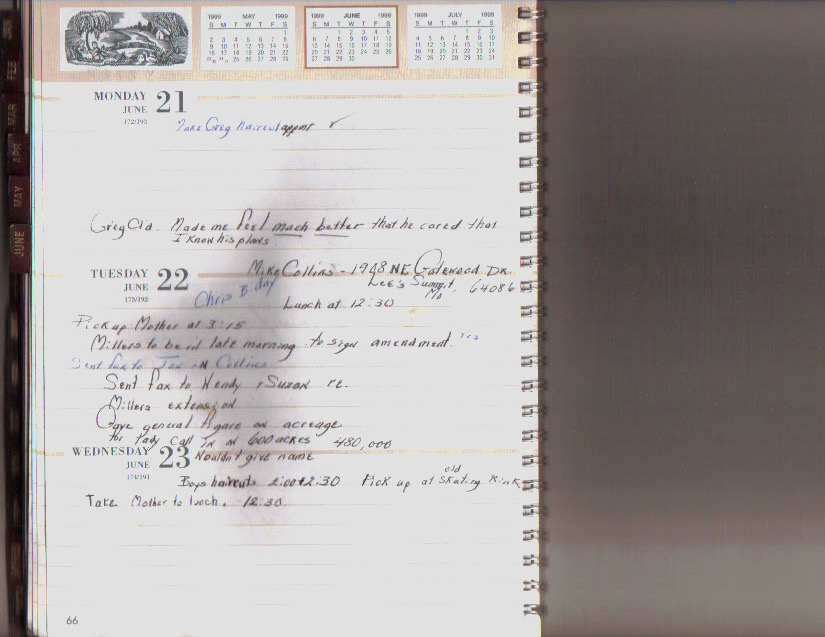 1999 MAY 1999
S M T W T F S
1
2 3 4 5 6 7 8
9 10 11 12 13 14 15
16 17 18 19 20 21 22
23 30 24 31 25 26 27 28 29
1999 JUNE 1999
S M T W T F S
1 2 3 4 5
6 7 8 9 10 11 12
13 14 15 16 17 18 19
20 21 22 23 24 25 26
27 28 29 30
1999 JULY 1999
S M T W T F S
1 2 3
4 5 6 7 8 9 10
11 12 13 14 15 16 17
18 19 20 21 22 23 24
25 26 27 28 29 30 31
FEB
MAR
APR
MAY
JUNE
MONDAY 21
JUNE
172/193
Make Greg haircut appmt ✓
Greg Cld. Made me feel much better that he cared that
I know his plans
TUESDAY 22
JUNE
173/192
Mike Collins - 1948 NE Gatewood Dr.
Lee's Summit,
Mo. 64086
Chris B day
Lunch at 12:30
Pick up Mother at 3:15
Millers to be in late morning to sign amendment. Yes
Sent fax to Jan on Collins
Sent fax to Wendy & Suzan re.
Millers extension
Gave general figure on acreage
for lady call in on 600 acres 480,000
Wouldn't give name
WEDNESDAY 23
JUNE
174/191
Boys haircuts 2:00 & 2:30 Pick up at old Skating Rink
Take Mother to lunch. 12:30
66